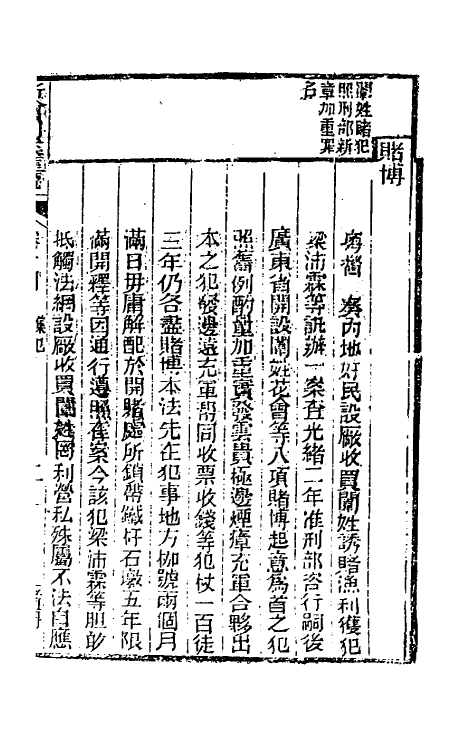 闈姓賭犯
照刑部新
章加重罪
名
賭博
粤督 奏內地奸民設厰收買闈姓誘賭漁利獲犯
梁沛霖等訊辦一案查光緒二年准刑部咨行嗣後
廣東省開設闈姓花會等八項賭博起意為首之犯
照舊例酌量加重實發雲貴極邊煙瘴充軍合夥出
本之犯發邊遠充軍幇同收票收錢等犯杖一百徒
三年仍各盡賭博本法先在犯事地方枷號兩個月
滿日毋庸解配於開賭處所鎖帶鐵杆石墩五年限
滿開釋等因通行遵照在案今該犯梁沛霖等胆敢
抵觸法網設厰收買闈姓罔利營私殊屬不法自應